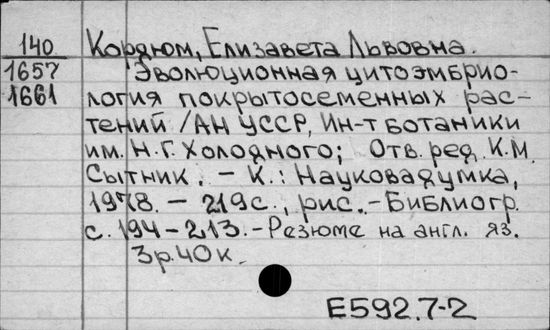 140 Кордюм, Елизавета Львовна.
1657 Эволюционная цитоэмбрио-
1661 логия покрытосеменных рас-
тений /АН УССР, Ин-т ботаники
им. Н.Г. Холодного; Отв. ред. К.М.
Сытник. - К.: Наукова думка,
1978. - 219 с., рис. - Библиогр.
с. 194-213. - Резюме на англ. яз.
3р.40к.
Е592.7-2